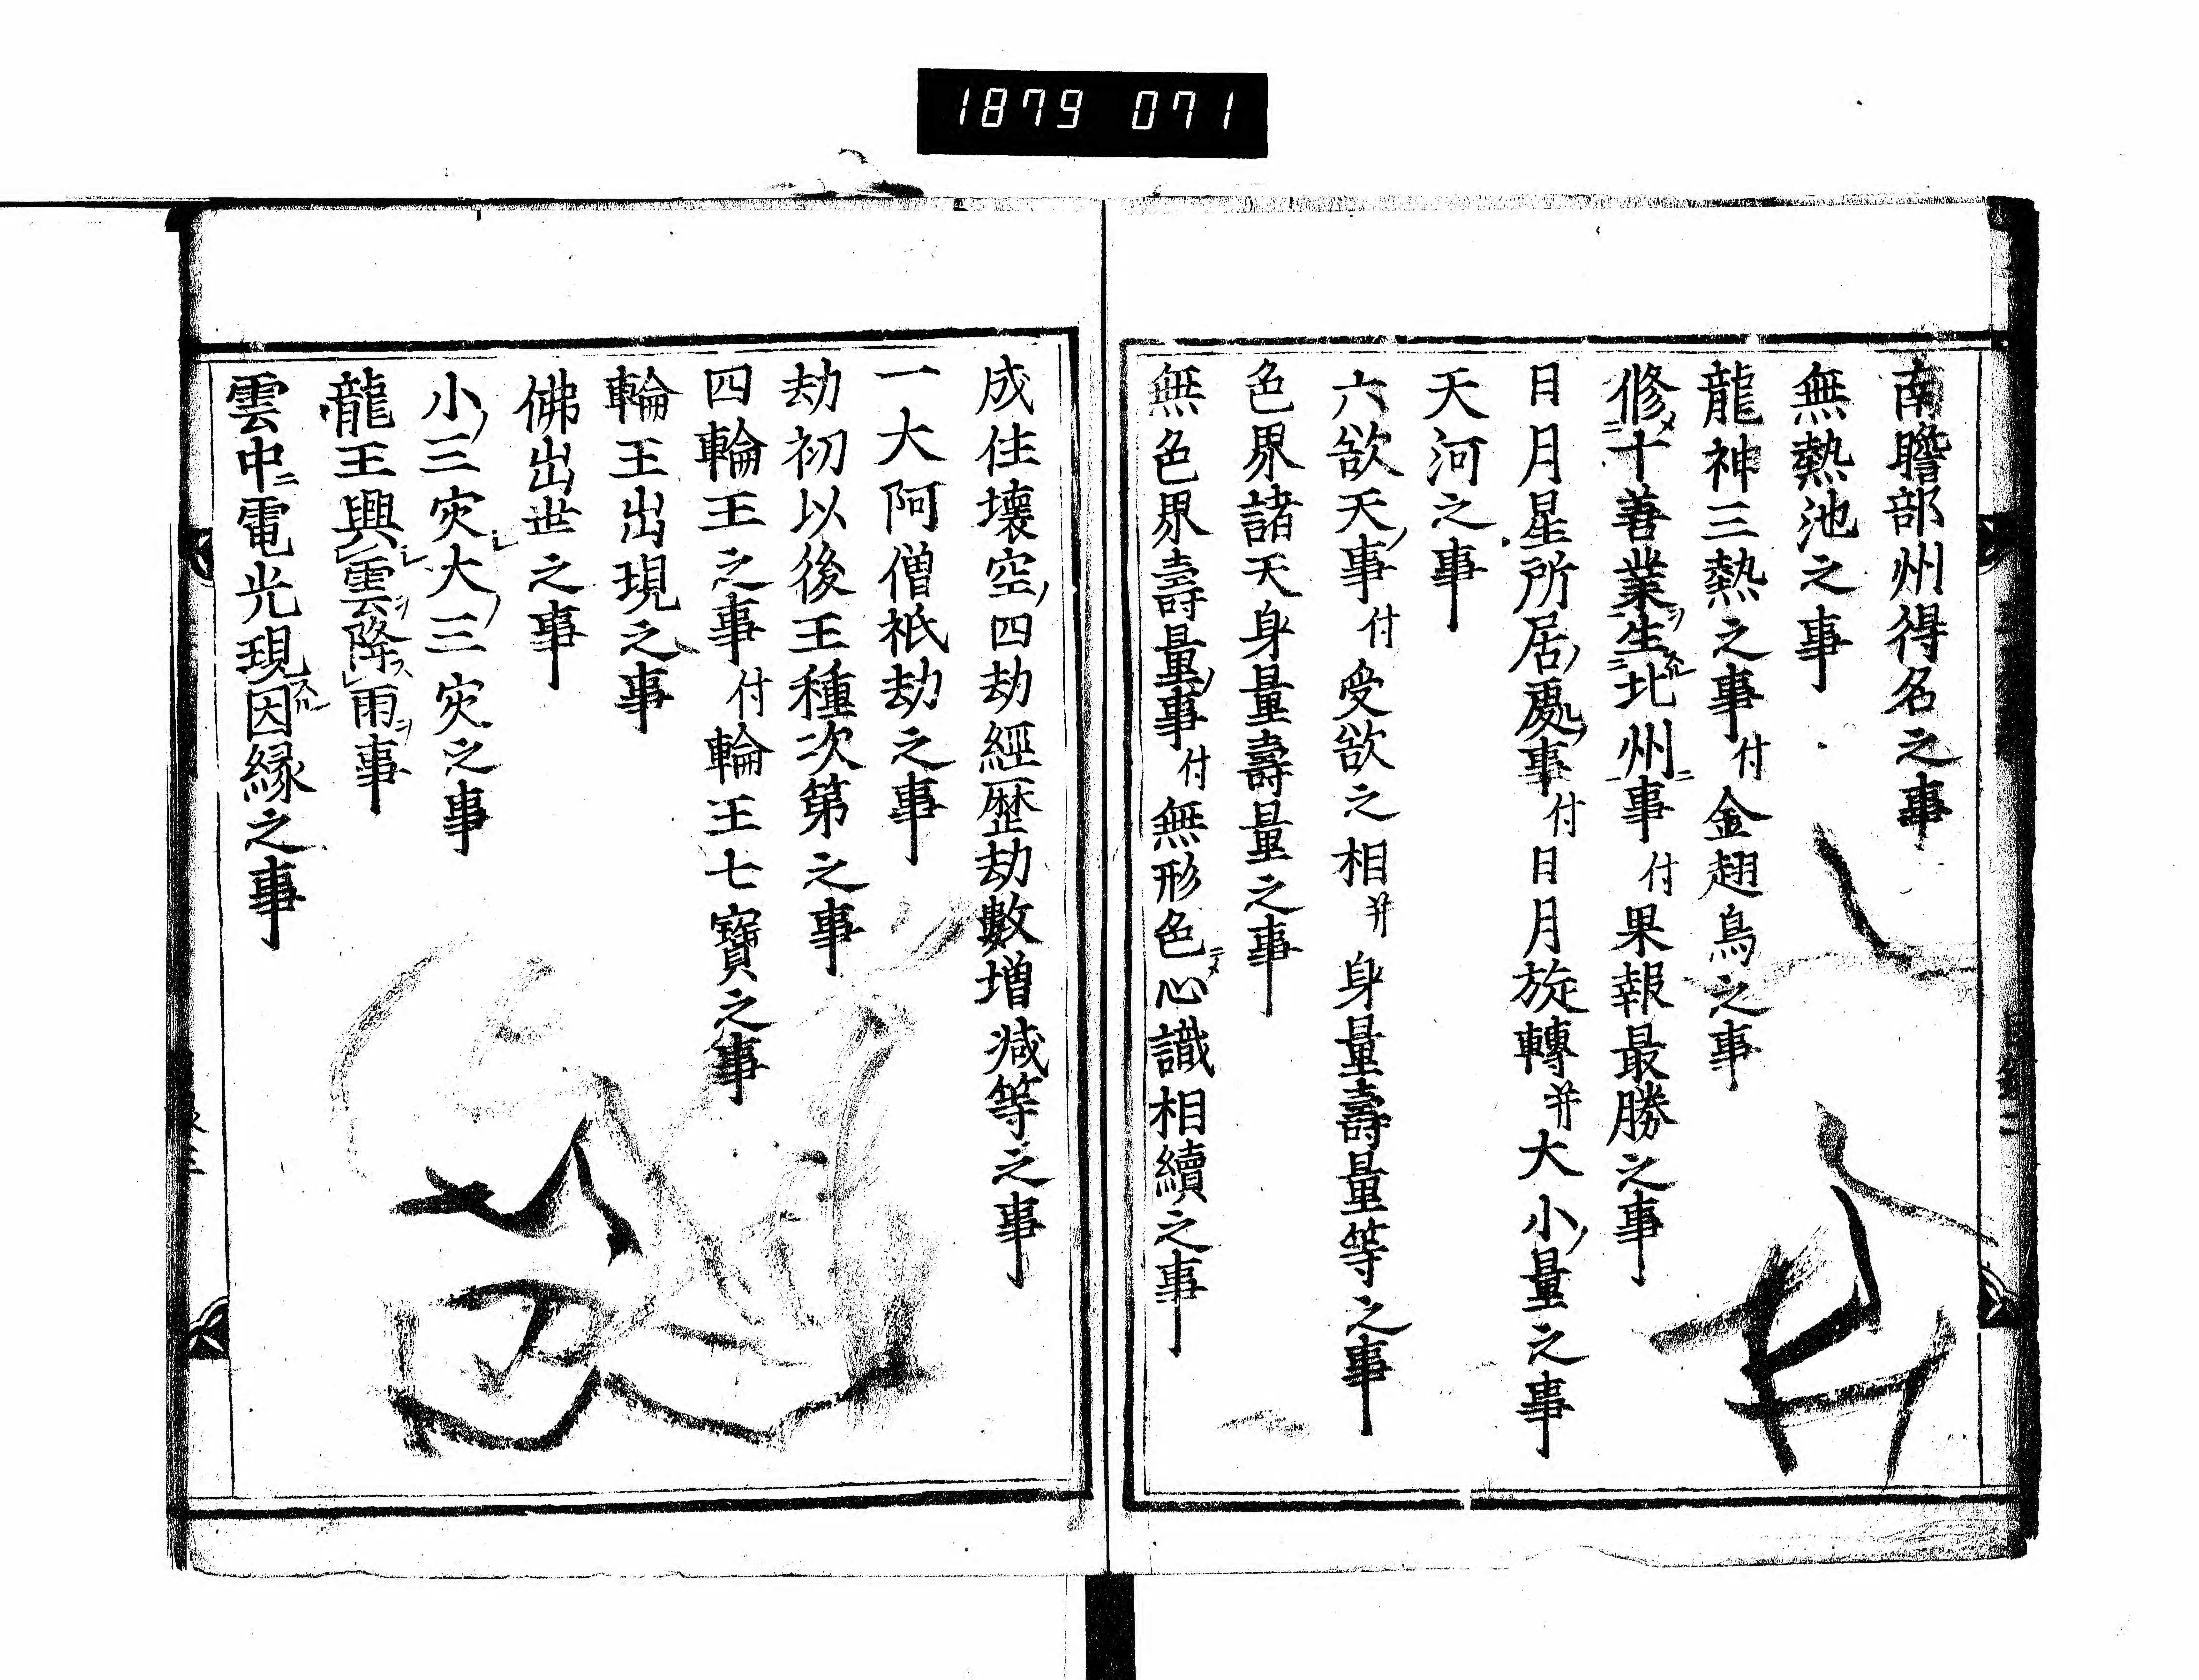 1879 071
南瞻部州得名之事
無熱池之事
龍神三熱之事付金翅鳥之事
修十善業生北州事付果報最勝之事
日月星所居處事付日月旋轉并大小量之事
天河之事
六欲天事付受欲之相并身量壽量等之事
色界諸天身量壽量之事
無色界壽量事付無形色心識相續之事
成住壞空四劫經歴劫數増減等之事
一大阿僧祇劫之事
劫初以後王種次第之事
四輪王之事付輪王七寶之事
輪王出現之事
佛出世之事
小三灾大三灾之事
龍王興雲降雨事
雲中電光現因縁之事